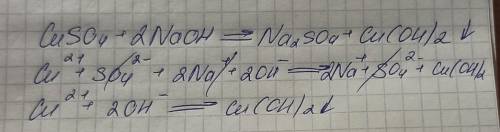 CuSO₄ + 2NaOH = Na₂SO₄ + Cu(OH)₂ ↓
Cu²⁺ + SO₄²⁻ + 2Na⁺ + 2OH⁻ = 2Na⁺ + SO₄²⁻ + Cu(OH)₂
Cu²⁺ + 2OH⁻ = Cu(OH)₂↓